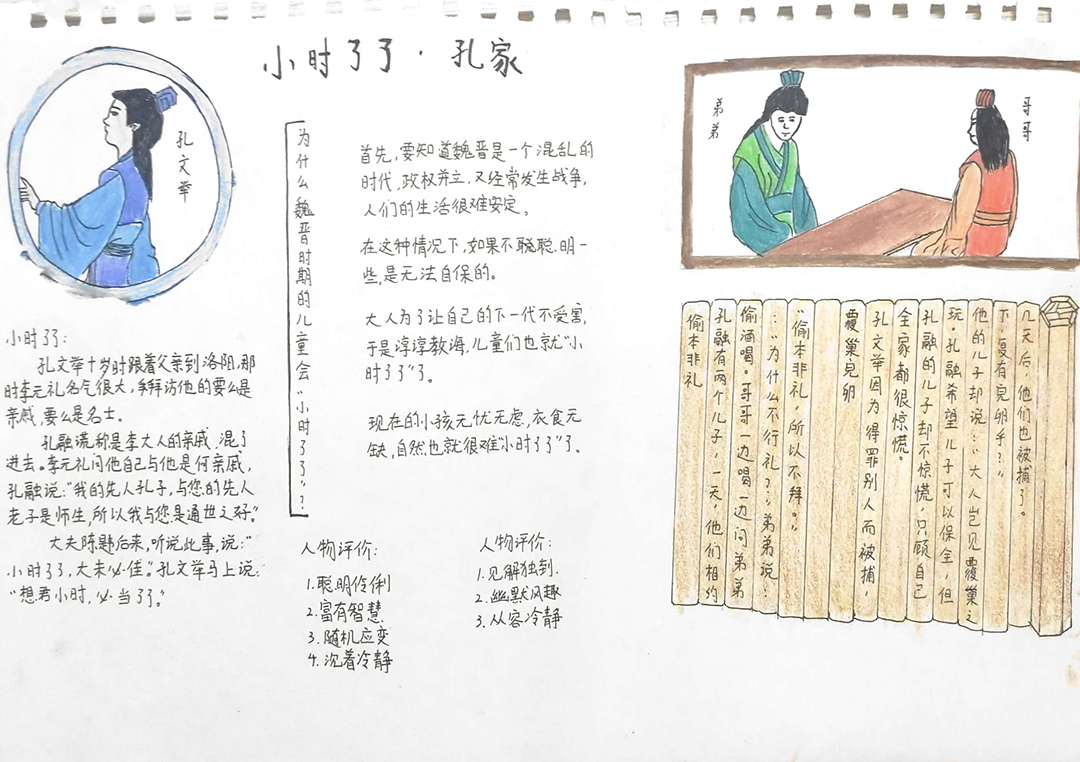 小时了了·孔家
孔文举
小时了了:
孔文举十岁时跟着父亲到洛阳,那
时李元礼名气很大,拜访他的要么是
亲戚,要么是名士。
孔融谎称是李大人的亲戚,混了
进去。李元礼问他自己与他是何亲戚,
孔融说:"我的先人孔子,与您的先人
老子是师生,所以我与您是通世之好。"
大夫陈韪后来,听说此事,说:"
小时了了,大未必佳。"孔文举马上说:
"想君小时,必当了了。"
为什么魏晋时期的儿童会"小时了了"?
首先,要知道魏晋是一个混乱的
时代,政权并立,又经常发生战争,
人们的生活很难安定。
在这种情况下,如果不聪明一
些,是无法自保的。
大人为了让自己的下一代不受害,
于是谆谆教诲,儿童们也就"小
时了了"了。
现在的小孩无忧无虑,衣食无
缺,自然也就很难"小时了了"了。
人物评价:
1.聪明伶俐
2.富有智慧
3.随机应变
4.沉着冷静
人物评价:
1.见解独到.
2.幽默风趣
3.从容冷静
弟弟
哥哥
偷本非礼
孔融有两个儿子,一天,他们相约
偷酒喝。哥哥一边喝一边问弟弟
:"为什么不行礼?"弟弟说:
"偷本非礼,所以不拜。"
覆巢完卵
孔文举因为得罪别人而被捕,
全家都很惊慌。
孔融的儿子却不惊慌,只顾自己
玩。孔融希望儿子可以保全,但
他的儿子却说:"大人岂见覆巢之
下,复有完卵乎?"
几天后,他们也被捕了。